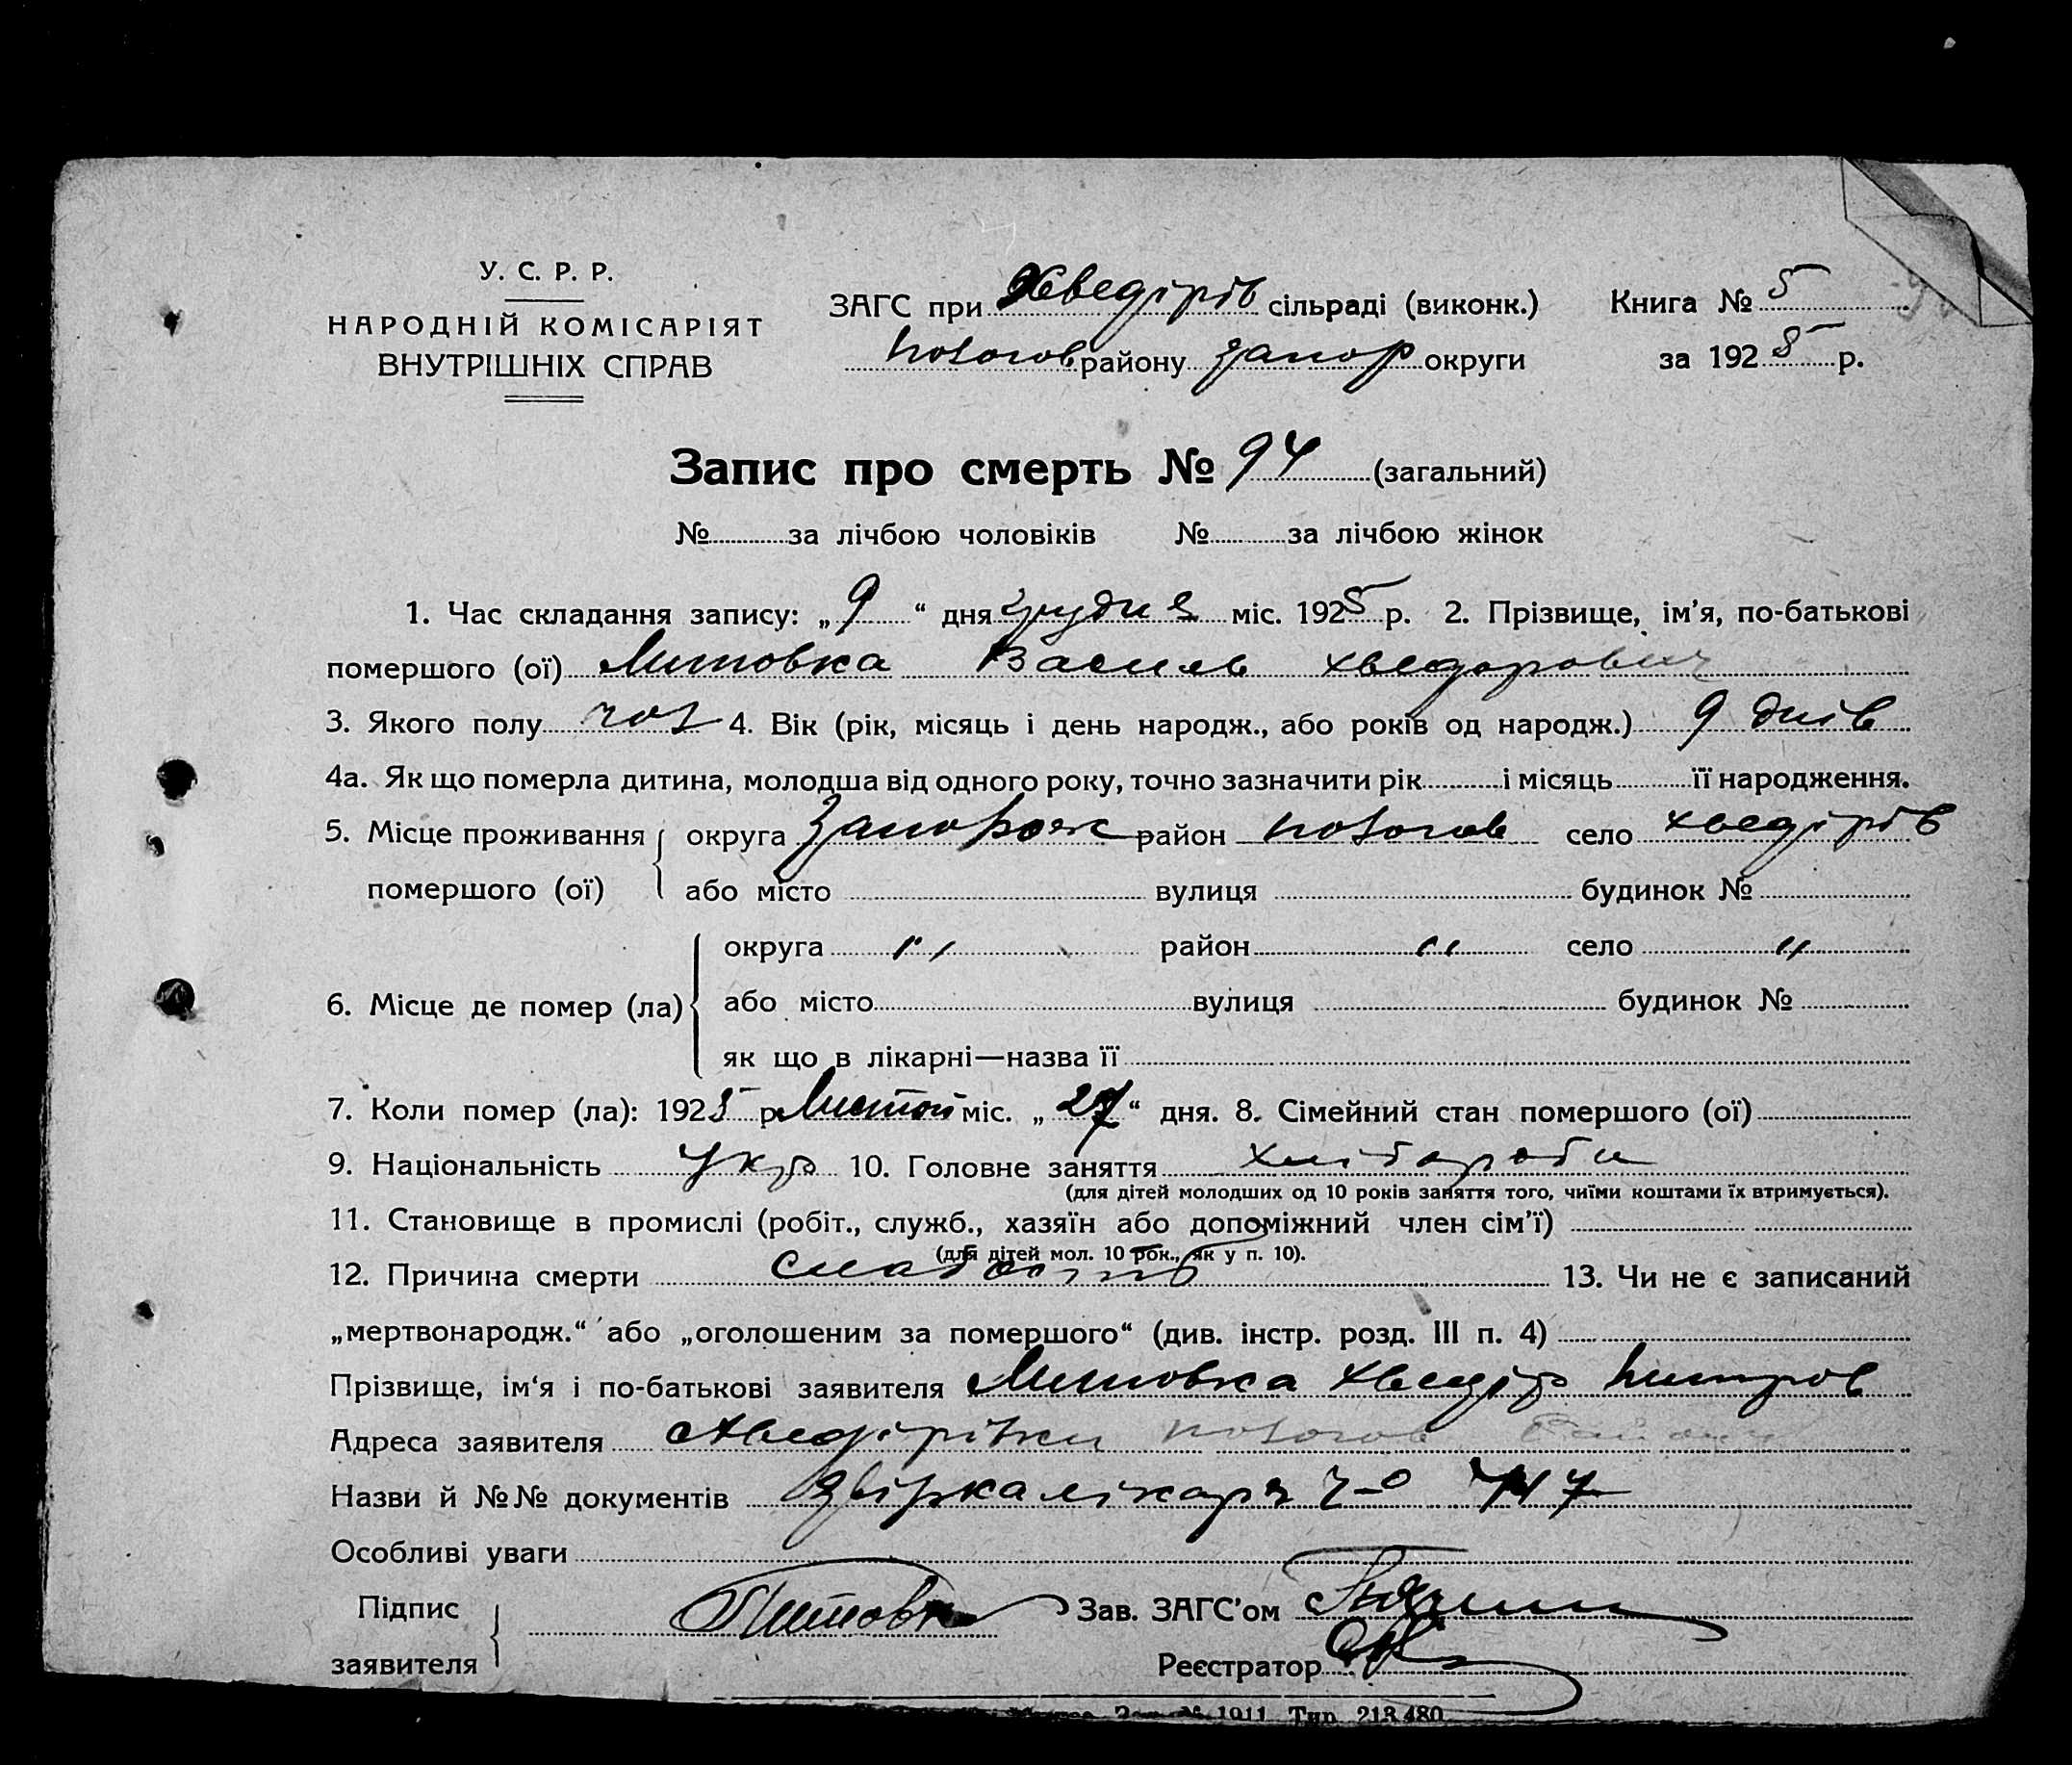 У. С. Р. Р.
НАРОДНІЙ КОМІСАРІЯТ
ВНУТРІШНІХ СПРАВ
ЗАГС при Хведірів сільраді (виконк.) Книга № 5
району Запор округи за 1925 р.
Запис про смерть № 94 (загальний)
№ за лічбою чоловіків № за лічбою жінок
1. Час складання запису: „9“ дня грудня міс. 1925 р. 2. Прізвище, ім'я, по-батькові
помершого (ої) Литовка Василь Хведорович
3. Якого полу чол 4. Вік (рік, місяць і день народж., або років од народж.) 9 днів
4а. Як що померла дитина, молодша від одного року, точно зазначити рік і місяць її народження.
5. Місце проживання округа Запорож район село Хведірів
помершого (ої) або місто вулиця будинок №
округа " район " село "
6. Місце де помер (ла) або місто вулиця будинок №
як що в лікарні—назва її
7. Коли помер (ла): 1925 р. Листоп міс. „27“ дня. 8. Сімейний стан помершого (ої)
9. Національність Укр 10. Головне заняття хлібороби
(для дітей молодших од 10 років заняття того, чиїми коштами їх втримується).
11. Становище в промислі (робіт., служб., хазяїн або допоміжний член сім'ї)
(для дітей мол. 10 рок., як у п. 10).
12. Причина смерти слабость 13. Чи не є записаний
„мертвонародж.“ або „оголошеним за помершого“ (див. інстр. розд. III п. 4)
Прізвище, ім'я і по-батькові заявителя Литовка Хведір Питров
Адреса заявителя Хведірівки району
Назви й №№ документів лікаря ч-о 747
Особливі уваги
Підпис Литовка Зав. ЗАГС'ом
заявителя Реєстратор
№ 1911 Тир. 213.480